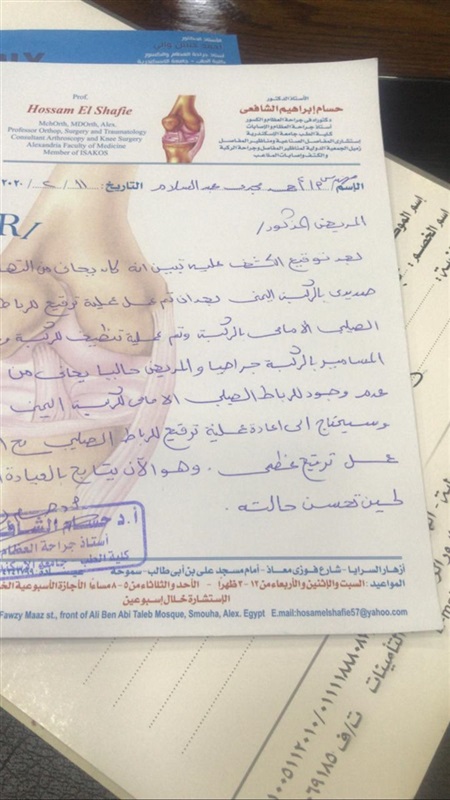 Prof.
Hossam El Shafie
MchOrth, MDOrth, Alex.
Professor Orthop, Surgery and Traumatology
Consultant Arthroscopy and Knee Surgery
Alexandria Faculty of Medicine
Member of ISAKOS
الأستاذ الدكتور
حسام إبراهيم الشافعى
دكتوراه فى جراحة العظام والكسور
أستاذ جراحة العظام والإصابات
كلية الطب جامعة الإسكندرية
إستشارى المفاصل الصناعية ومناظير المفاصل
زميل الجمعية الدولية لمناظير المفاصل وجراحة الركبة
والكتف وإصابات الملاعب
الإسم / أحمد مجدى عبد السلام التاريخ: ١١ / ٢ / ٢٠٢٠
R/
المريض المذكور /
بعد توقيع الكشف عليه تبين انه كان يعانى من
صديدى بالركبة اليمنى بعد ان تم عمل عملية ترقيع للرباط
الصليبى الامامى بالركبة وتم عملية تنظيف للركبة
المسامير بالركبة جراحيا والمريض حاليا يعانى من
عدم وجود للرباط الصليبى الامامى للركبة اليمنى
وسيحتاج الى اعادة عملية ترقيع للرباط الصليبى مع
عمل ترقيع عظمى . وهو الآن يتابع بالعيادة
لحين تحسن حالته .
أ.د حسام الشافعى
أستاذ جراحة العظام
كلية الطب
أزهار السرايا - شارع فوزى معاذ - أمام مسجد على بن أبى طالب - سموحة
المواعيد: السبت والإثنين والأربعاء من ١٢ - ٣ ظهراً - الأحد والثلاثاء من ٥ - ٨ مساءً الأجازة الأسبوعية
الإستشارة خلال إسبوعين
Fawzy Maaz st., front of Ali Ben Abi Taleb Mosque, Smouha, Alex. Egypt E.mail:hosamelshafie57@yahoo.com
إسم الخصم:
التأمينات